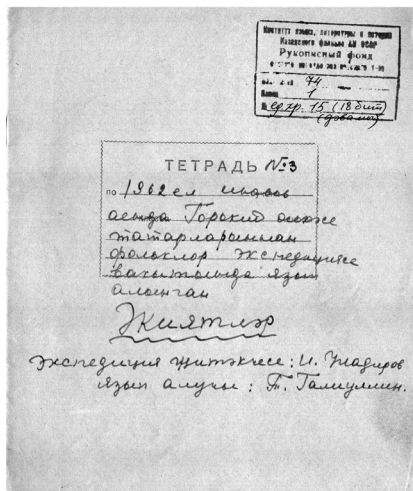 Институт языка, литературы и истории
Казанского филиала АН СССР
Рукописный фонд
74
1
№ ед.хр. 15 (18 бит)
(дәвамы)
ТЕТРАДЬ №3
по 1962 ел
аенда Горький өлкәсе
татарларыннан
фольклор экспедициясе
вакытында язып
алынган
Әкиятләр
Экспедиция җитәкчесе: И. Надиров
язып алучы: Т. Галиуллин.